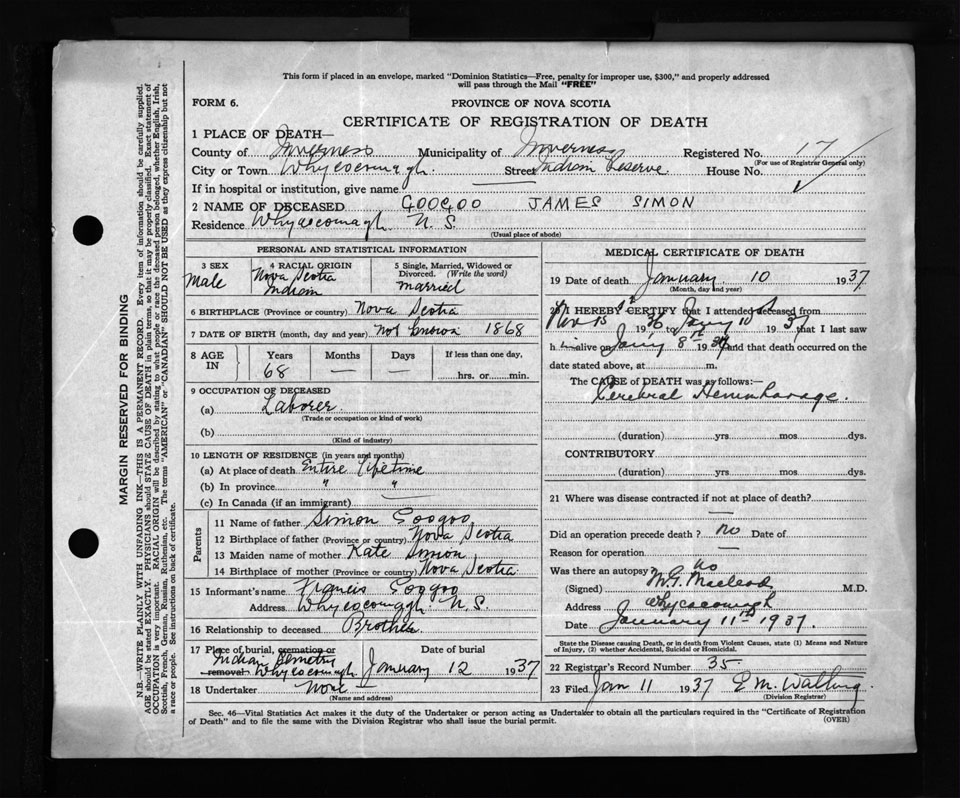 This form if placed in an envelope, marked "Dominion Statistics—Free, penalty for improper use, $300," and properly addressed
will pass through the Mail "FREE"
FORM 6.
PROVINCE OF NOVA SCOTIA
CERTIFICATE OF REGISTRATION OF DEATH
1 PLACE OF DEATH—
County of Inverness Municipality of Inverness Registered No. 17
(For use of Registrar General only)
City or Town Whycocomagh. Street Indian Reserve House No.
If in hospital or institution, give name
2 NAME OF DECEASED GOOGOO JAMES SIMON
Residence Whycocomagh N.S.
(Usual place of abode)
PERSONAL AND STATISTICAL INFORMATION
3 SEX Male
4 RACIAL ORIGIN Nova Scotia Indian
5 Single, Married, Widowed or Divorced. (Write the word) married
6 BIRTHPLACE (Province or country) Nova Scotia
7 DATE OF BIRTH (month, day and year) not known 1868
8 AGE IN Years 68 Months — Days — If less than one day, hrs. or min.
9 OCCUPATION OF DECEASED
(a) Laborer.
(Trade or occupation or kind of work)
(b)
(Kind of industry)
10 LENGTH OF RESIDENCE (in years and months)
(a) At place of death Entire lifetime
(b) In province " "
(c) In Canada (if an immigrant) —
Parents
11 Name of father Simon Googoo
12 Birthplace of father (Province or country) Nova Scotia
13 Maiden name of mother Kate Simon
14 Birthplace of mother (Province or country) Nova Scotia
15 Informant's name Francis Googoo
Address Whycocomagh N.S.
16 Relationship to deceased Brother
17 Place of burial, cremation or removal Date of burial
Indian Cemetry Whycocomagh. January 12 1937
18 Undertaker None
(Name and address)
MEDICAL CERTIFICATE OF DEATH
19 Date of death January 10 1937
(Month, day and year)
20 I HEREBY CERTIFY that I attended deceased from
Nov 15 1936 to Jan'y 10 1937 that I last saw
him alive on Jan'y 8th 1937 and that death occurred on the
date stated above, at m.
The CAUSE of DEATH was as follows:
Cerebral Hemmhorage.
(duration) yrs mos dys.
CONTRIBUTORY
(duration) yrs mos dys.
21 Where was disease contracted if not at place of death?
—
Did an operation precede death? no Date of
Reason for operation —
Was there an autopsy? no
(Signed) M.G. Macleod M.D.
Address Whycocomagh
Date January 11th 1937.
State the Disease causing Death, or in death from Violent Causes, state (1) Means and Nature
of Injury, (2) whether Accidental, Suicidal or Homicidal.
22 Registrar's Record Number 35
23 Filed Jan 11 1937 E.M. Walling.
(Division Registrar)
Sec. 46—Vital Statistics Act makes it the duty of the Undertaker or person acting as Undertaker to obtain all the particulars required in the "Certificate of Registration
of Death" and to file the same with the Division Registrar who shall issue the burial permit.
(OVER)
MARGIN RESERVED FOR BINDING
N.B.—WRITE PLAINLY WITH UNFADING INK—THIS IS A PERMANENT RECORD. Every item of information should be carefully supplied.
AGE should be stated EXACTLY. PHYSICIANS should STATE CAUSE OF DEATH in plain terms, so that it may be properly classified. Exact statement of
OCCUPATION is very important. RACIAL ORIGIN will be described by stating to what people or race the deceased person belonged, whether English, Irish,
Scottish, French, German, Russian, Ruthenian, etc. The terms "AMERICAN" or "CANADIAN" SHOULD NOT BE USED as they express citizenship but not
a race or people. See instructions on back of certificate.